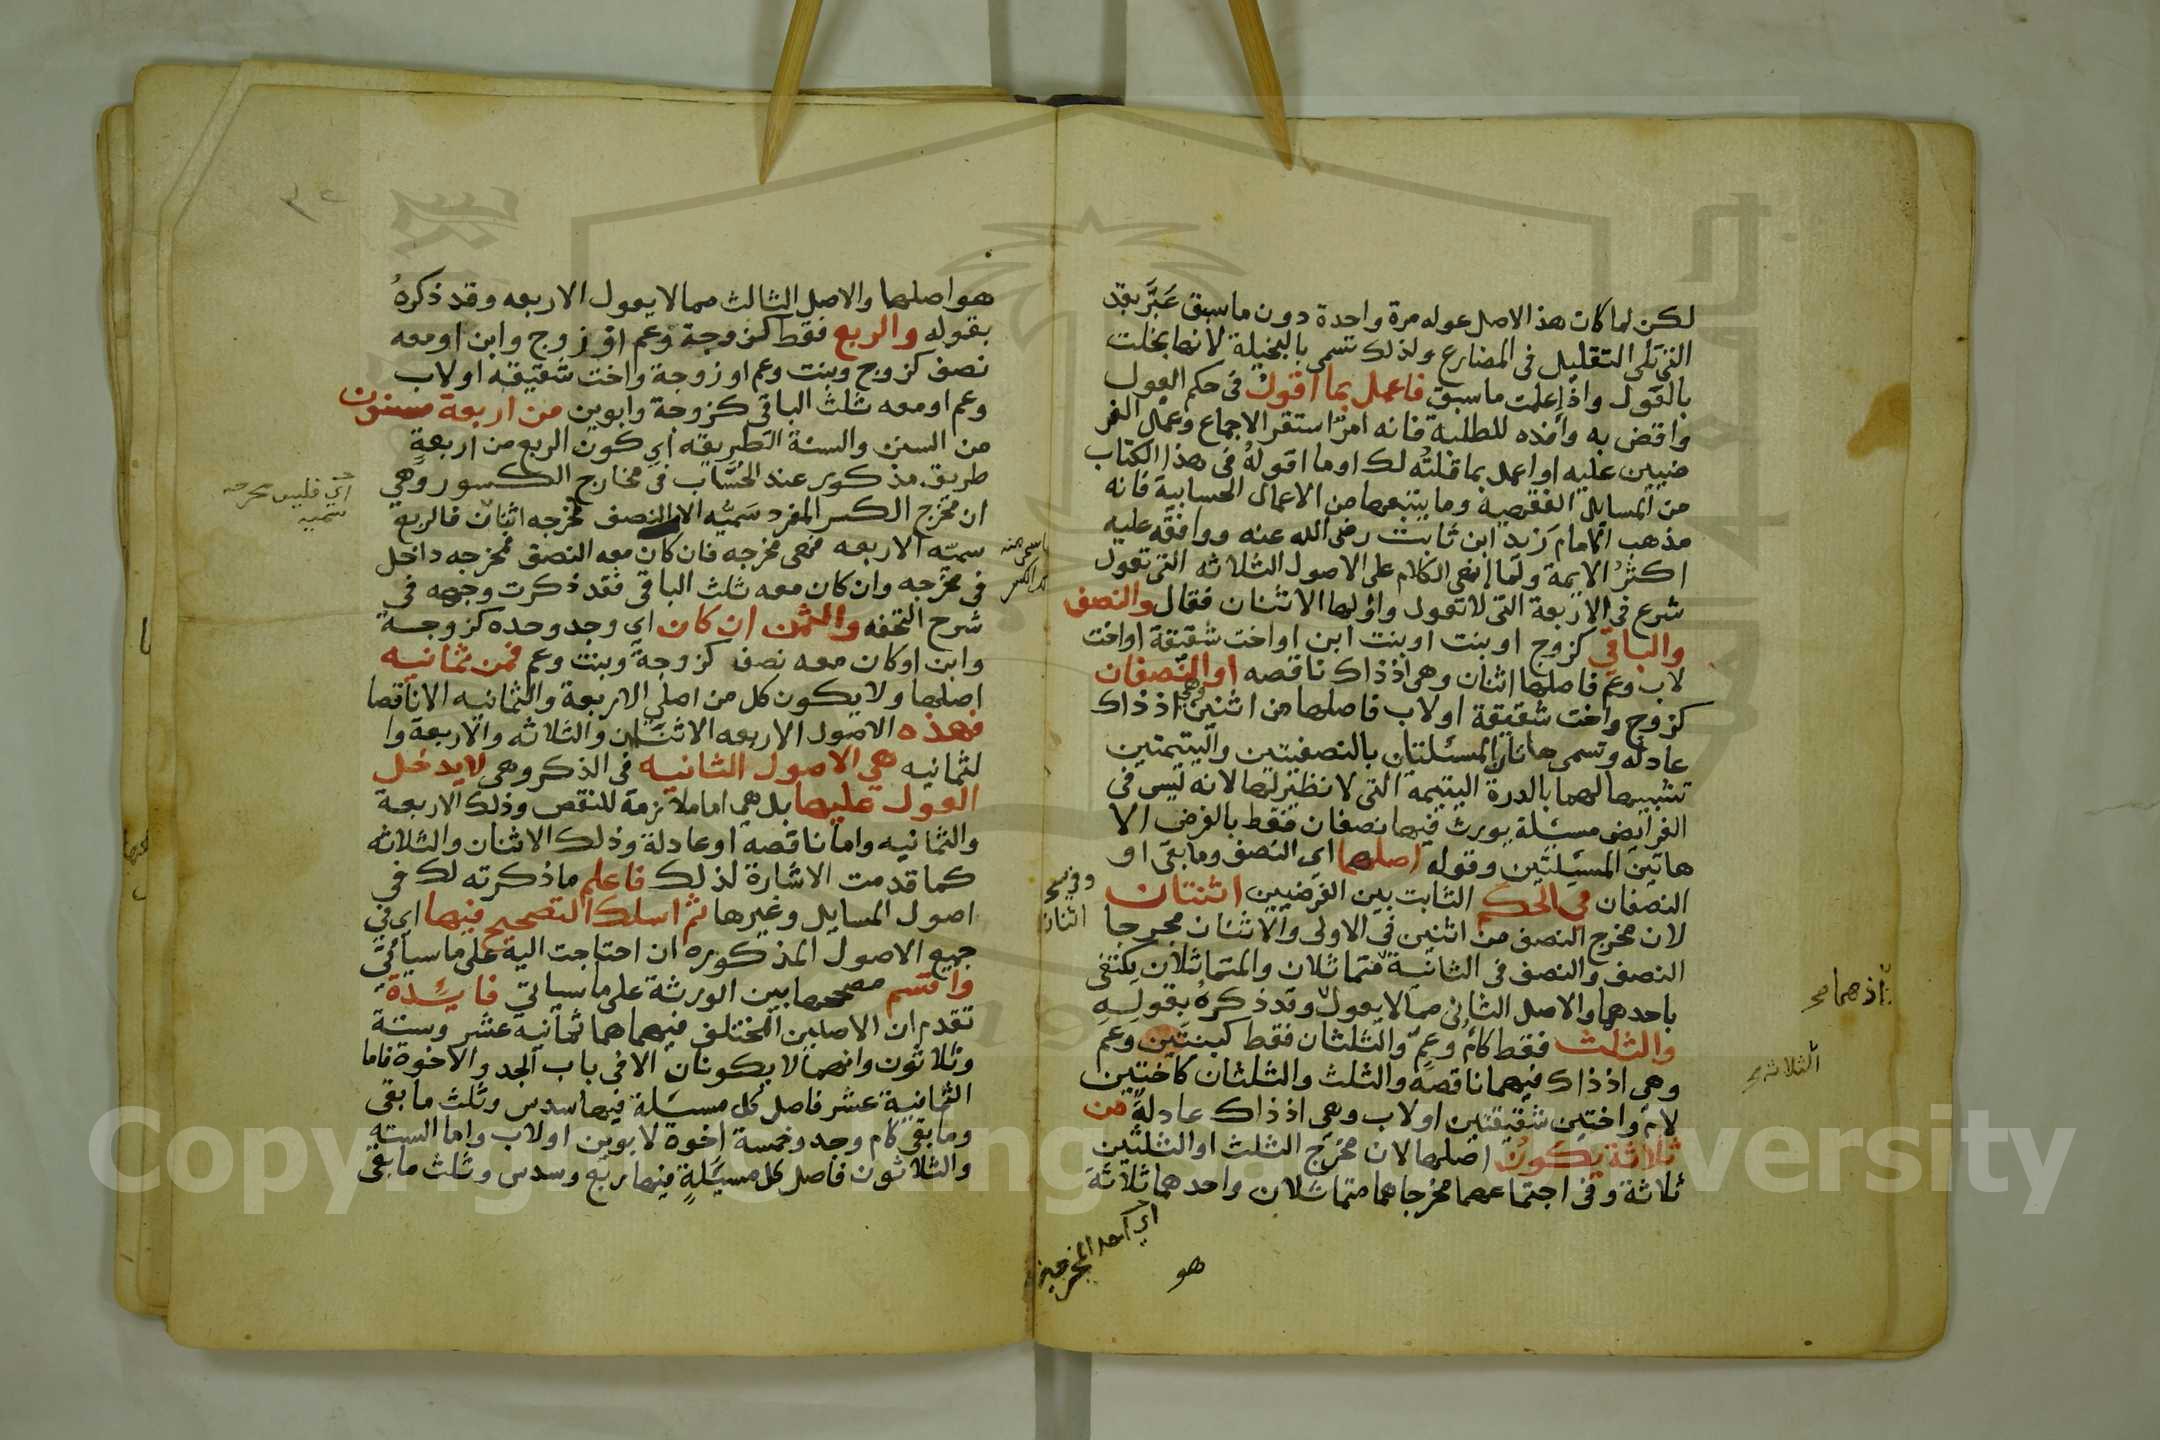 لكن لما كان هذا الاصل عوله مرة واحدة دون ما سبق عبَّر بقد
التي تلي التقليل في المضارع ولذلك تسمى بالبخيلة لانها بخلت
بالعول واذا علمت ما سبق فاعمل بما اقول في حكم العول
واقض به وافده للطلبة فانه امرٌ استقر الاجماع وعمل الفر
ضيين عليه او اعمل بما قلتُه لك او ما اقولهُ في هذا الكتاب
من المسايل الفقهية وما يتبعها من الاعمال الحسابية فانه
مذهب الامام زيد ابن ثابت رضي الله عنه ووافقه عليه
اكثرُ الايمة ولما انهى الكلام على الاصول الثلاثه التي تعول
شرع في الاربعة التي لا تعول واولها الاثنان فقال والنصف
والباقي كزوج او بنت او بنت ابن او اخت شقيقة او اخت
لاب وعم فاصلها اثنان وهي اذ ذاك ناقصه او النصفان
كزوج واخت شقيقة او لاب فاصلها من اثنين وهي اذ ذاك
عادله وتسمى هاتان المسئلتان بالنصفيتين واليتيمتين
تشبيها لهما بالدرة اليتيمة التي لا نظير لها لانه ليس في
الفرايض مسيلة يورث فيها نصفان فقط بالفرض الا
هاتين المسيلتين وقوله اصلهما اي النصف وما بقى او
النصفان في الحكم الثابت بين الفرضيين اثنتان
وفي نسخ
اثنان
لان مخرج النصف من اثنين في الاولى والاثنان مخرجا
النصف والنصف في الثانية متماثلان والمتماثلان يكتفى
اذ هما صح
باحدهما والاصل الثاني مما لا يعول وقد ذكره بقوله
والثلث فقط كام وعم والثلثان فقط كبنتين وعم
الثلاثة صح
وهي اذ ذاك فيهما ناقصه والثلث والثلثان كاختين
لام واختين شقيقتين او لاب وهي اذ ذاك عادلة من
ثلاثة يكون اصلها لان مخرج الثلث او الثلثين
ثلاثة وفي اجتماعهما مخرجاهما متماثلان واحدهما ثلاثة
اي احد المخرجين
هو
هو اصلها والاصل الثالث مما لا يعول الاربعه وقد ذكرهُ
بقوله والربع فقط كزوجة وعم او زوج وابن او معه
نصف كزوج وبنت وعم او زوجة واخت شقيقه او لاب
وعم او معه ثلث الباقي كزوجة وابوين من اربعة مسنون
من السنن والسنة الطريقه اي كون الربع من اربعةٍ
طريق مذكور عند الحُسَّاب في مخارج الكسور وهي
اي فليس مخرجه
سميه
ان مخرج الكسر المفرد سميُّه الا النصف فمخرجه اثنان فالربع
سميّه الاربعه فهي مخرجه فان كان معه النصف فمخرجه داخل
في مخرجه وان كان معه ثلث الباقي فقد ذكرت وجهه في
شرح التحفه والثمن ان كان اي وجد وحده كزوجة
وابن او كان معه نصف كزوجة وبنت وعم فمن ثمانيه
اصلها ولا يكون كل من اصلي الاربعة والثمانيه الا ناقصا
فهذه الاصول الاربعه الاثنان والثلاثه والاربعة وا
لثمانيه هي الاصول الثانيه في الذكر وهي لا يدخل
العول عليها بل هي اما ملازمة للنقص وذلك الاربعة
والثمانيه واما ناقصه او عادلة وذلك الاثنان والثلاثه
كما قدمت الاشارة لذلك فاعلم ما ذكرته لك في
اصول المسايل وغيرها ثم اسلك التصحيح فيها اي في
جميع الاصول المذكوره ان احتاجت اليه على ما سيأتي
واقسم مصححها بين الورثة على ما سياتي فايدة
تقدم ان الاصلين المختلف فيهما هما ثمانيه عشر وستة
وثلاثون وانهما لا يكونان الا في باب الجد والاخوة فاما
الثمانية عشر فاصل كل مسيلة فيها سدس وثلث ما بقى
وما بقي كام وجد وخمسة اخوة لابوين او لاب واما الستة
والثلاثون فاصل كل مسيلةٍ فيها ربع وسدس وثلث ما بقى
Copyright © King Saud University